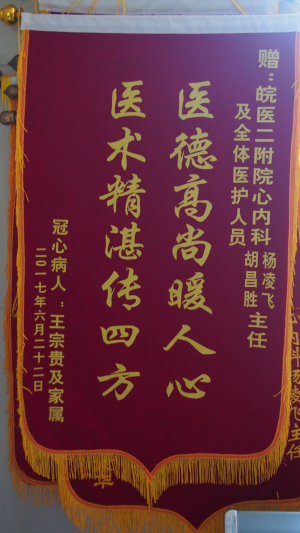 赠：皖医二附院心内科杨凌飞 胡昌胜主任
及全体医护人员
医德高尚暖人心
医术精湛传四方
冠心病人：王宗贵及家属
二〇一七年六月二十二日